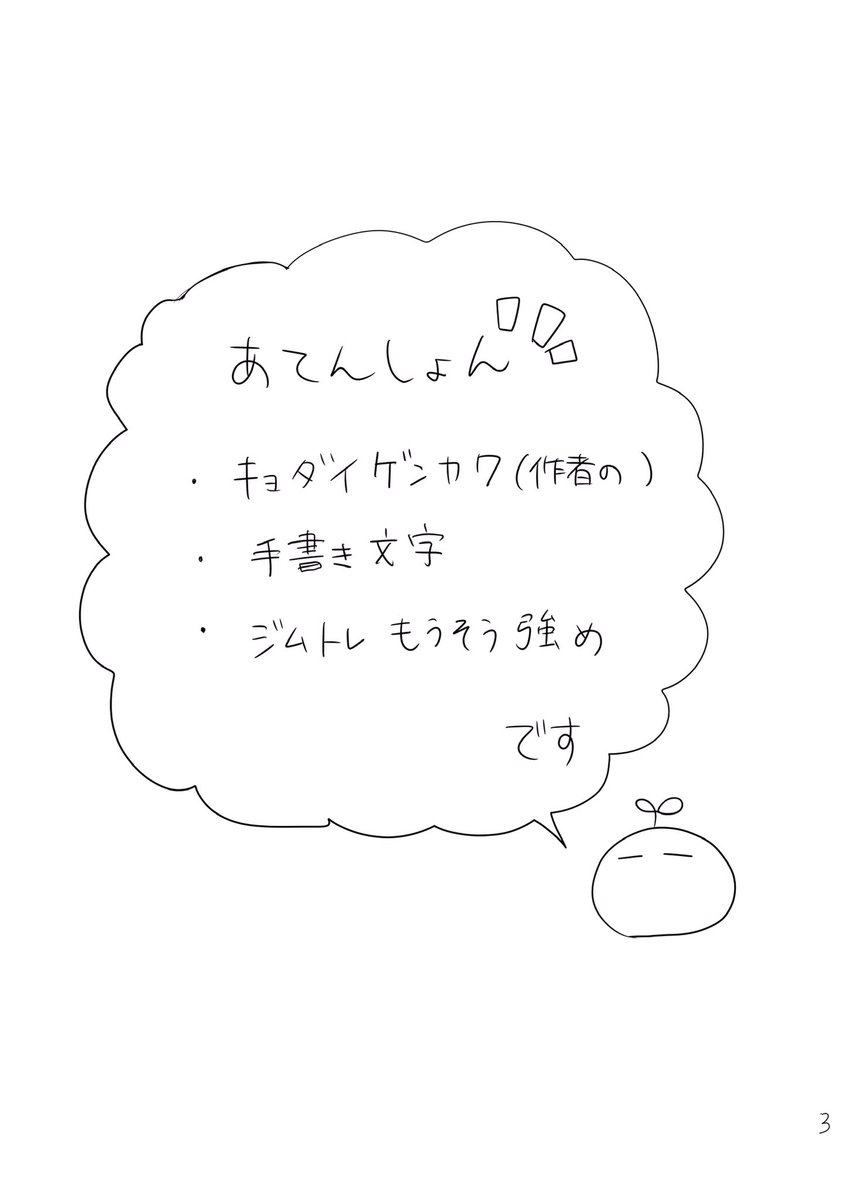 あてんしょん
・キョダイゲンカワ(作者の)
・手書き文字
・ジムトレもうそう強め
です
3